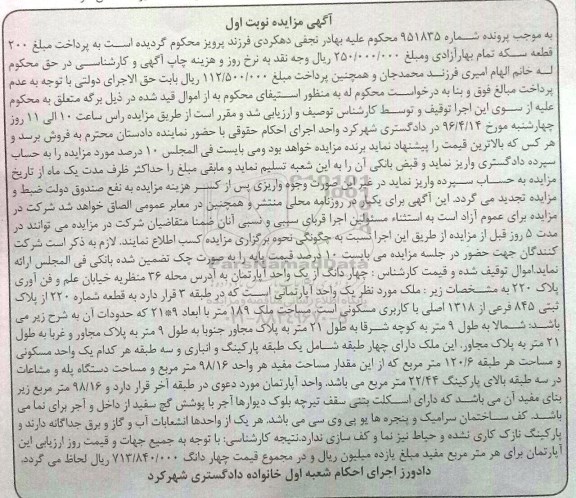 آگهی مزایده نوبت اول
به موجب پرونده شماره ۹۵۱۸۳۵ محکوم علیه بهادر نجفی دهکردی فرزند پرویز محکوم گردیده است به پرداخت مبلغ ۲۰۰
قطعه سکه تمام بهارآزادی ومبلغ ۲۵۰/۰۰۰/۰۰۰ ریال وجه نقد به نرخ روز و هزینه چاپ آگهی و کارشناسی در حق محکوم
له خانم الهام امیری فرزند محمدجان و همچنین پرداخت مبلغ ۱۱۲/۵۰۰/۰۰۰ ریال بابت حق الاجرای دولتی با توجه به عدم
پرداخت مبالغ فوق و بنا به درخواست محکوم له به منظور استیفای محکوم به از اموال قید شده در ذیل برگه متعلق به محکوم
علیه از سوی این اجرا توقیف و توسط کارشناس توصیف و ارزیابی شد و مقرر است از طریق مزایده راس ساعت ۱۰ الی ۱۱ روز
چهارشنبه مورخ ۹۶/۴/۱۴ در دادگستری شهرکرد واحد اجرای احکام حقوقی با حضور نماینده دادستان محترم به فروش برسد و
هر کس که بالاترین قیمت را پیشنهاد نماید برنده مزایده خواهد بود ومی بایست فی المجلس ۱۰ درصد مورد مزایده را به حساب
سپرده دادگستری واریز نماید و قبض بانکی آن را به این شعبه تسلیم نماید و مابقی مبلغ را حداکثر ظرف مدت یک ماه از تاریخ
مزایده به حساب سپرده واریز نماید در غیر این صورت وجوه واریزی پس از کسر هزینه مزایده به نفع صندوق دولت ضبط و
مزایده تجدید می گردد. این آگهی برای یکبار در روزنامه محلی منتشر و همچنین در معابر عمومی الصاق خواهد شد شرکت در
مزایده برای عموم آزاد است به استثناء مسئولین اجرا قربای سببی و نسبی آنان ضمنا متقاضیان شرکت در مزایده می توانند در
مدت ۵ روز قبل از مزایده از طریق این اجرا نسبت به چگونگی نحوه برگزاری مزایده کسب اطلاع نمایند. لازم به ذکر است شرکت
کنندگان جهت حضور در جلسه مزایده می بایست ۱۰ درصد قیمت پایه را به صورت چک تضمین شده بانکی فی المجلس ارائه
نماید.اموال توقیف شده و قیمت کارشناس : چهار دانگ از یک واحد آپارتمان به آدرس محله ۳۶ منظریه خیابان علم و فن آوری
پلاک ۲۲۰ به مشخصات زیر : ملک مورد نظر یک واحد آپارتمانی است که در طبقه ۳ قرار دارد به قطعه شماره ۲۲۰ از پلاک
ثبتی ۸۴۵ فرعی از ۱۳۱۸ اصلی با کاربری مسکونی است مساحت ملک ۱۸۹ متر با ابعاد ۹*۲۱ که حدودات آن به شرح زیر می
باشد: شمالا به طول ۹ متر به کوچه شرقا به طول ۲۱ متر به پلاک مجاور جنوبا به طول ۹ متر به پلاک مجاور و غربا به طول
۲۱ متر به پلاک مجاور. این ملک دارای چهار طبقه شامل یک طبقه پارکینگ و انباری و سه طبقه هر کدام یک واحد مسکونی
و مساحت هر طبقه ۱۲۰/۶ متر مربع که از این مقدار مساحت مفید هر واحد ۹۸/۱۶ متر مربع و مساحت دستگاه پله و مشاعات
در سه طبقه بالای پارکینگ ۲۲/۴۴ متر مربع می باشد. واحد آپارتمان مورد دعوی در طبقه آخر قرار دارد و ۹۸/۱۶ متر مربع زیر
بنای مفید آن می باشد که دارای اسکلت بتنی سقف تیرچه بلوک دیوارها آجر با پوشش گچ سفید از داخل و آجر برای نما می
باشد. کف ساختمان سرامیک و پنجره ها یو پی وی سی می باشد. هر یک از واحدها انشعابات آب و گاز و برق جداگانه دارند و
پارکینگ نازک کاری نشده و حیاط نیز نما و کف سازی ندارد.نتیجه کارشناسی: با توجه به جمیع جهات و قیمت روز ارزیابی این
آپارتمان برای هر متر مربع مفید مبلغ یازده میلیون ریال و در مجموع قیمت چهار دانگ ۷۱۳/۸۴۰/۰۰۰ ریال لحاظ می گردد.
دادورز اجرای احکام شعبه اول خانواده دادگستری شهرکرد